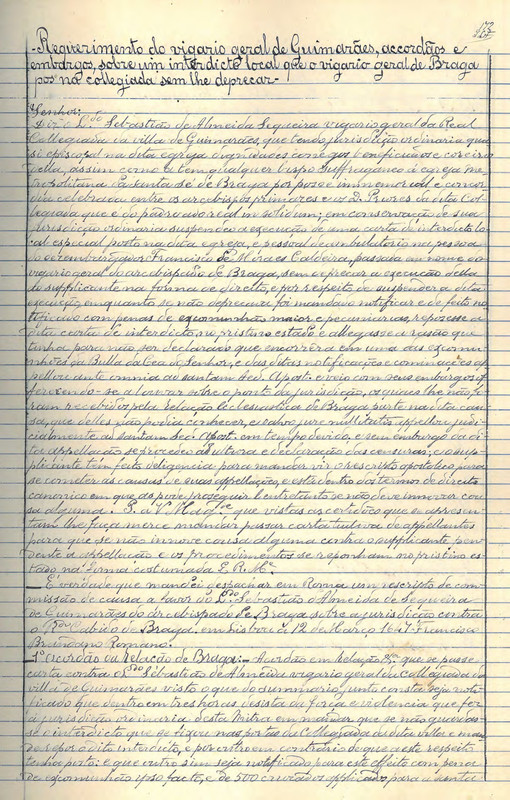 173
Requerimento do vigario geral de Guimarães, accordãos e
embargos, sobre um interdicto local que o vigario geral de Braga
pos na collegiada sem lhe deprecar
Senhor:
Diz o L.do Sebastião de Almeida Sequeira vigario geral da Real
Collegiada da villa de Guimarães, que tendo jurisdição ordinaria qua
si episcopal na dita egreja dignidades conegos beneficiados e coreiros
della, assim como a tem qualquer bispo suffraganeo á egreja me
tropolitana da santa Sé de Braga por posse immemorial e concor
dia celebrada entre os arcebispos primazes e os D. Priores da dita Col
legiada que é do padroado real in solidum; em conservação de sua
jurisdição ordinaria suspendeo a execução de uma carta de interdicto lo
cal especial posto na dita egreja, e pessoal deambulatorio na pessoa
do desembargador Francisco de Caldeira, passada em nome do
vigario geral do arcebispado de Braga, sem deprecar a execução della
ao supplicante na forma de direito, e por respeito de suspender a dita
execução, enquanto se não deprecava, foi mandado notificar e de feito no
tificado com penas de excommunhão maior e pecuniarias, reposesse a
dita carta de interdicto no pristino estado e allegasse a rasão que
tinha para não ser declarado que encorrêra em uma das excomu
nhões da Bulla da Cea do Senhor, e das ditas notificações e cominações ap
pellou ante omnia ad sanctam Sed. Apost. e veio com seus embargos of
ferecendo-se a louvar sobre o ponto da jurisdição, os quaes lhe não fo
ram recebidos pela relação ecclesiastica de Braga parte na dita cau
sa, que delles não podia conhecer, e salvo jure nullitatis appellou judi
cialmente ad sanctam Sed. Apost. em tempo devido, e sem embargo da di
ta appellação se procedeo a e declaração das censuras; e o sup
plicante tem feito diligencia para mandar vir rescripto apostolico para
se cometer as causas de suas appellações, e está dentro dos termos de direito
canonico em que as póde proseguir e entretanto se não deve innovar cou
sa alguma. P. a V. Mag.de que vistas as certidões que em apresen
ta lhe faça merce mandar passar carta tuitiva de appellantes
para que se não innove cousa alguma contra o supplicante pen
dente a appellação e os procedimentos se reponham no pristino es
tado na forma costumada E. R. M.ce
É verdade que mandei despachar em Roma um rescripto de com
missão de causa a favor do L.do Sebastião de Almeida de Sequeira
de Guimarães do arcebispado de Braga, sobre a jurisdição contra
o R.do Cabido de Braga, em Lisboa a 12 de Março 1647. Francisco
Brandano Romano.
1.º Accordão da relação de Braga: - Acordão em Relação &.ª que se passe
carta contra o L.do Sebastião de Almeida vigario geral da Collegiada da
villa de Guimarães visto o que do summario junto consta seja noti
ficado que dentro em tres horas, desista da força e violencia que fez
á jurisdição ordinaria desta Mitra em mandar que se não guardas
se o interdicto que se fixou nas portas da Collegiada da dita villa e man
de repôr o dito interdicto, e por outro em contrario do que a este respeito
tenha posto: e que outro sim seja notificado para este effeito com pena
de excomunhão ipso facto, e de 500 cruzados applicados para a santa